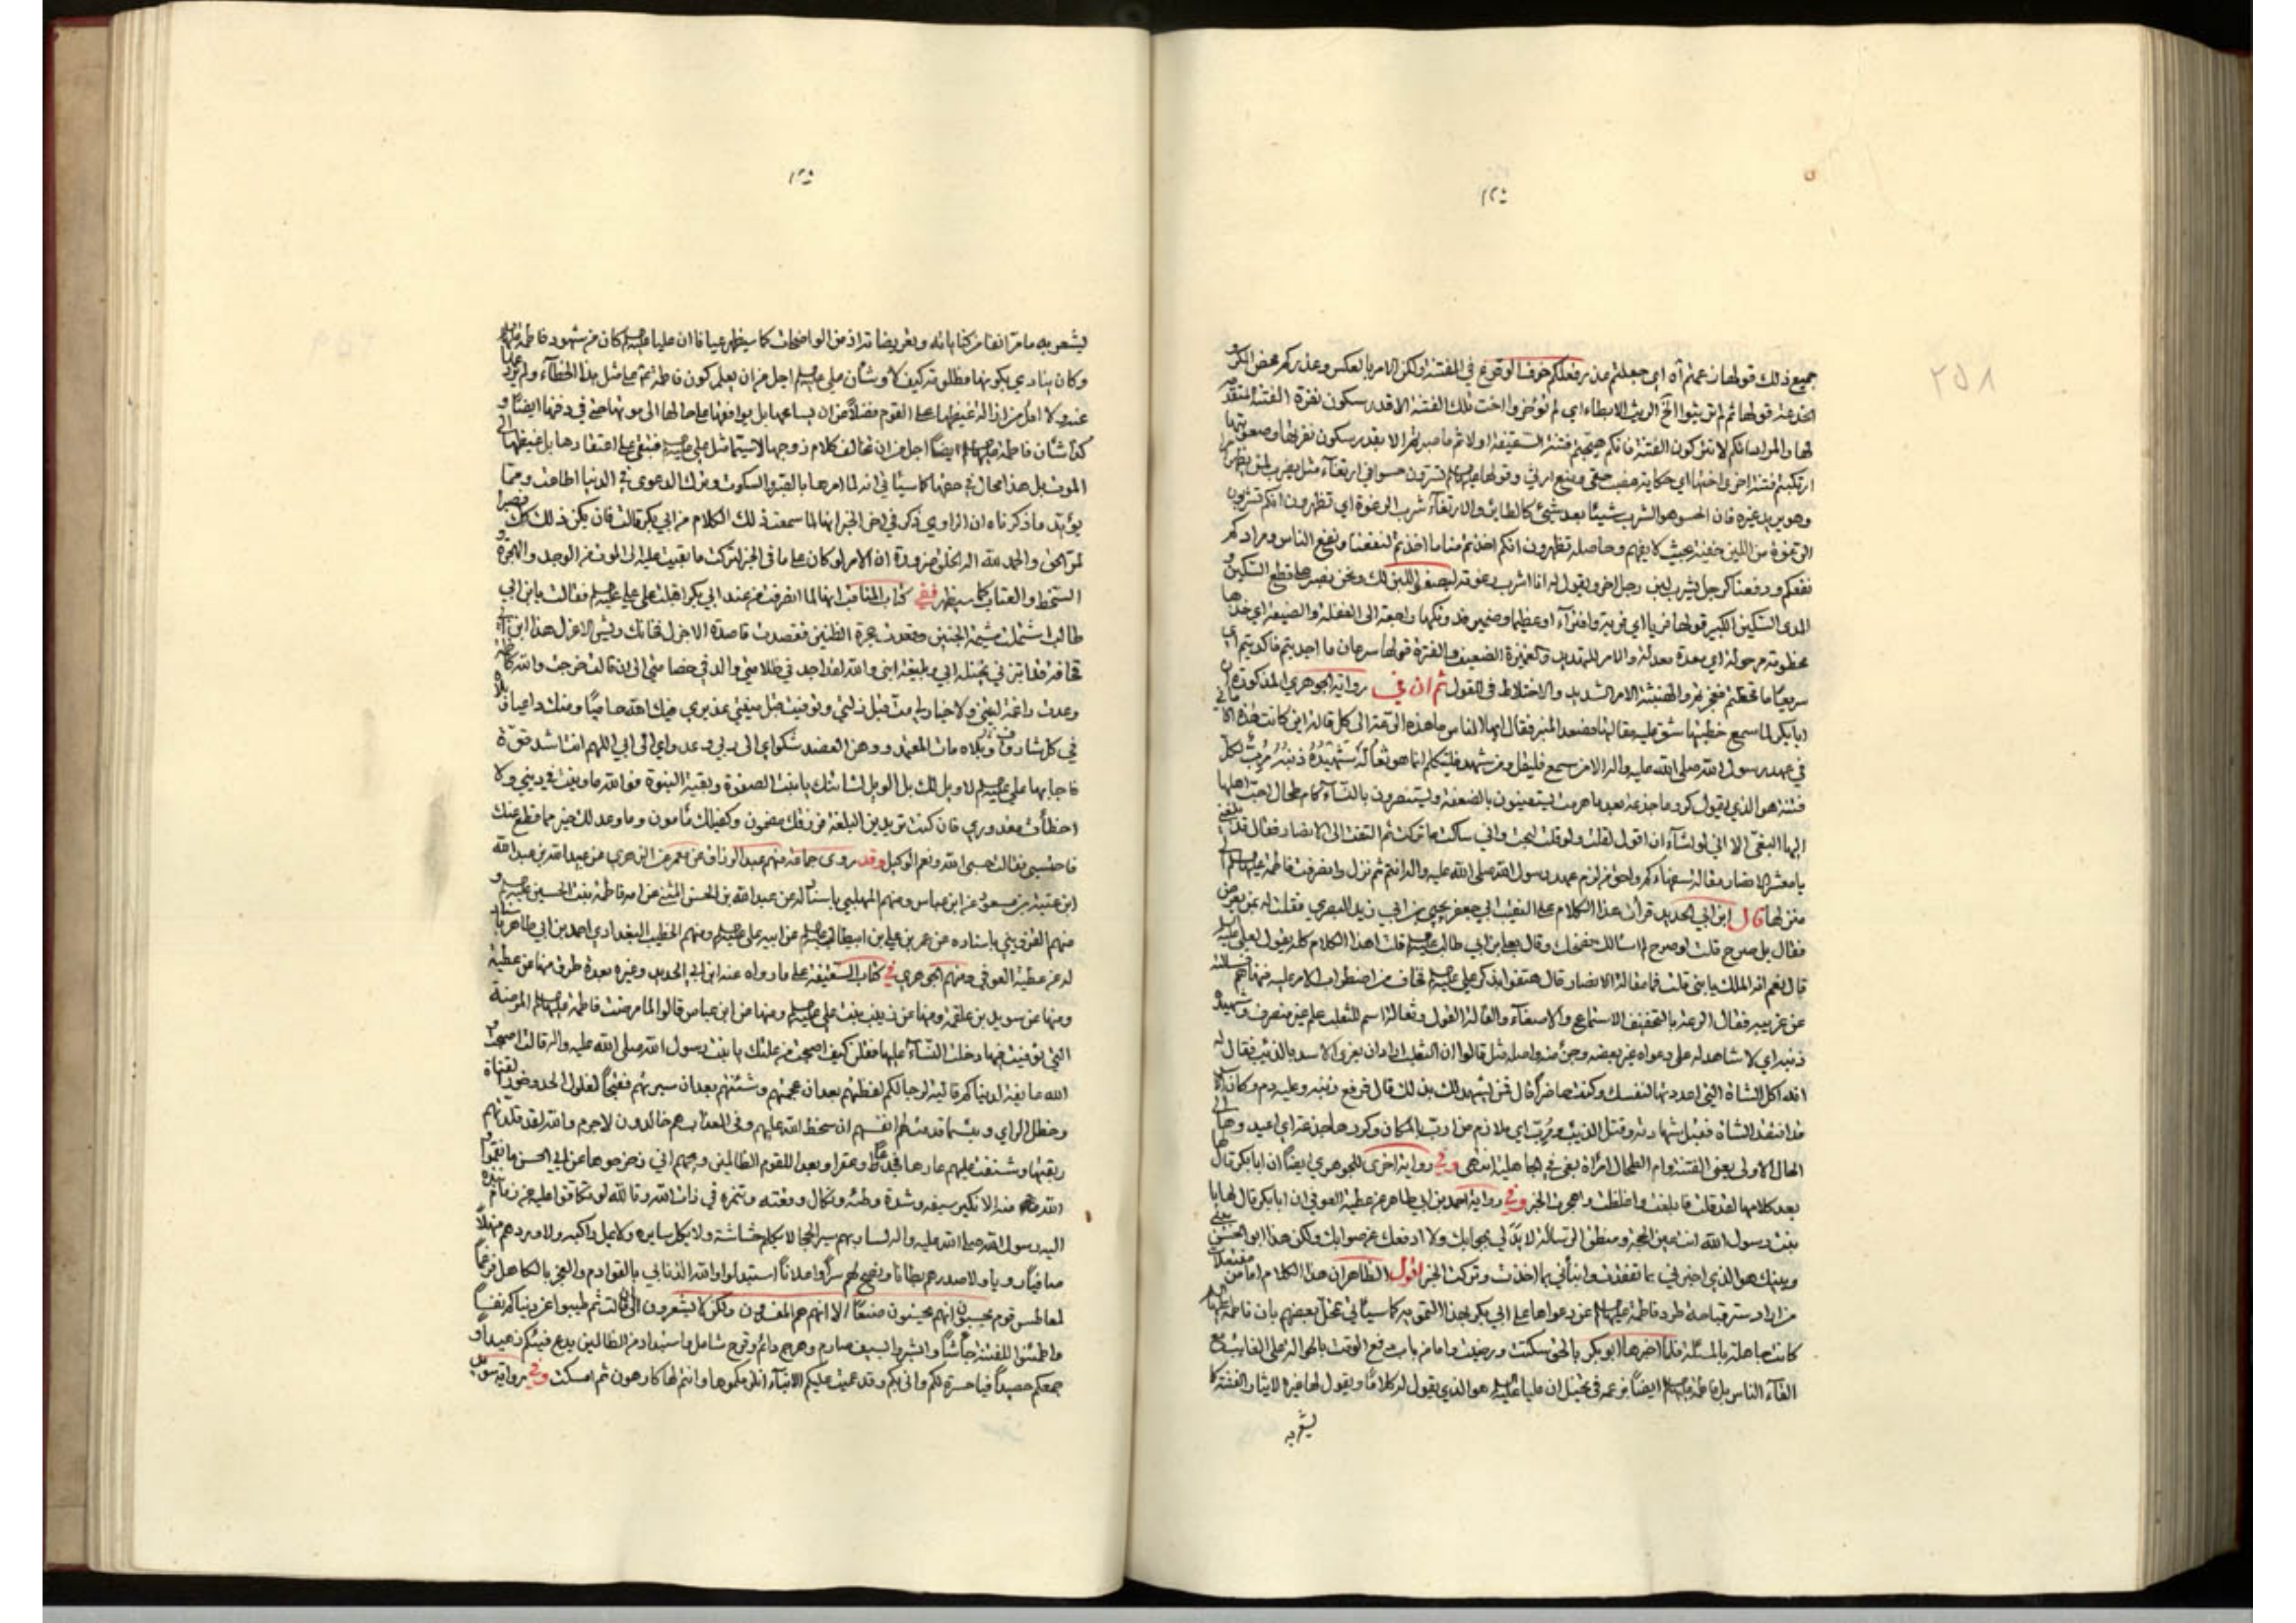 جميع ذلك قولها زعمتم آه اي جعلتم من رفعلكم خوف الوقوع في الفتنة ولكن الامر بالعكس وعذركم محض المكر و
الخدعة قولها ثم لم تريثوا الخ الريث الابطاء اي لم تؤخروا اخت تلك الفتنة الا قدر سكون نفرة الفتنة المتقدمة
لها والمراد انكم لا تتركون الفتنة فانكم هيجتم فتنة السقيفة اولا ثم ما صبرتم الا بقدر سكون نفرتها وصعوبتها
ارتكبتم فتنة اخرى اختها اي حكاية غصب حقي ومنع ارثي وقولها عليها السلم تسرون حسوا في ارتغاء مثل يضرب لمن يظهر امرا
وهو يريد غيره فان الحسو هو الشرب شيئا بعد شئ كالطائر والارتغاء شرب الرغوة اي تظهرون انكم تشربون
الرغوة من اللبن خفية بحيث لا يفهم وحاصله تظهرون انكم اخذتم منا ما اخذتم لنفعنا ونفع الناس ومرادكم
نفعكم ودفعنا كرجل يشرب لبن رجل اخر ويقول له انا اشرب رغوته ليصفى اللبن لك ونحن نصبر على قطع السكين و
المدى السكين الكبير قولها فريا اي فرية وافتراء او عظيما وضمير فدونكها راجعة الى الغفلة والضيعة اي خذها
سريعا ما تحفظتم فجزتم والهنبثة الامر الشديد والاختلاط في القول ثم ان في رواية الجوهري المذكورة ان
ابا بكر لما سمع خطبتها شق عليه مقالتها فصعد المنبر فقال ايها الناس ما هذه الرعة الى كل قالة اين كانت هذه الاماني
في عهد رسول الله صلى الله عليه واله الا من سمع فليقل ومن شهد فليتكلم انما هو ثعالة شهيده ذنبه مرب لكل
فتنة هو الذي يقول كروها جذعة بعد ما هرمت يستعينون بالضعفة ويستنصرون بالنساء كام طحال احب اهلها
اليها البغي الا اني لو اشاء ان اقول لقلت ولو قلت لبحت واني ساكت ما تركت ثم التفت الى الانصار فقال قد بلغني
يا معشر الانصار مقالة سفهائكم واحق من لزم عهد رسول الله صلى الله عليه واله انتم ثم نزل وانصرفت فاطمة عليها السلم الى
منزلها قال ابن ابي الحديد قرأت هذا الكلام على النقيب ابي جعفر يحيى بن ابي زيد البصري فقلت له بمن يعرض
فقال بل يصرح قلت لو صرح لم اسالك فضحك وقال بعلي بن ابي طالب عليه السلم قلت اهذا الكلام كله يقول لعلي عليه السلم
قال نعم انه الملك يا بني قلت فما مقالة الانصار قال هتفوا بذكر علي عليه السلم فخاف من اضطراب الامر عليه فنهاهم فسالته
عن غريبه فقال الرعة بالتخفيف الاستماع والاصغاء والقالة القول وثعالة اسم للثعلب علم غير منصرف وشهيده
ذنبه اي لا شاهد له على دعواه غير بعضه وجزء منه واصله مثل قالوا ان الثعلب اراد ان يغري الاسد بالذئب فقال له
انه اكل الشاة التي اعددتها لنفسك وكنت حاضرا قال فمن يشهد لك بذلك قال فرفع ذنبه وعليه دم وكان الاسد
قد افتقد الشاة فقبل شهادته وقتل الذئب ومرب اي ملازم من ارب بالمكان وكروها جذعة اي اعيدوها الى
الحال الاولى يعني الفتنة وام الطحال امراة بغي في الجاهلية انتهى وفي رواية اخرى للجوهري ايضا ان ابا بكر قال لها
بعد كلامها لقد قلت فابلغت واغلظت واهجرت الخبر وفي رواية احمد بن ابي طاهر عن عطية العوفي ان ابا بكر قال لها يا
بنت رسول الله انت عين الحجة ومنطق الرسالة لا يدلي بجوابك ولا ادفعك عن صوابك ولكن هذا ابو الحسن بيني
وبينك هو الذي اخبرني بما تفقدت وانبأني بما اخذت وتركت الخبر اقول الظاهر ان هذا الكلام اما من مفتعلات
من اراد ستر قباحة طرد فاطمة عليها السلم عن دعواها على ابي بكر بهذا التمويه كما سيأتي تمحل بعضهم بان فاطمة عليها السلم
كانت جاهلة بالمسئلة فلما اخبرها ابو بكر بالحق سكتت ورضيت واما من باب دفع الوقت بالحوالة على الغائب مع
القاء الناس بل فاطمة عليها السلم ايضا بزعمه في تخيل ان عليا عليه السلم هو الذي يقول له كلاما ويقول لها غيره لايثار الفتنة كما
ليشعر به
ليشعر به ما مر انفا من كناياته وتعريضاته اذ من الواضحات كما سيظهر عيانا ان عليا عليه السلم كان من شهود فاطمة عليها السلم
وكان ينادي بكونها مظلومة كيف لا وشأن علي عليه السلم اجل من ان يعلم كون فاطمة عم على مثل هذا الخطاء ولم يردعها
عنه ولا اقل من ازالة غيظها على القوم فضلا من ان يساعها بل يوافقها على حالها الى موتها حتى في دفنها ايضا و
كذا شأن فاطمة عليها السلم ايضا اجل من ان تخالف كلام زوجها لا سيما مثل علي عليه السلم فتبقى على اعتقادها بل غيظها الى
الموت بل هذا محال في حقها كما سيأتي انه لما امرها بالصبر والسكوت وترك الدعوى في الدنيا اطاعت ومما
يؤيد ما ذكرناه ان الراوي ذكر في اخر الخبر انها لما سمعت ذلك الكلام من ابي بكر قالت فان يكن ذلك كذلك فصبرا
لمر الحق والحمد لله اله الخلق ضرورة ان الامر لو كان على ما في الخبر لتركت ما بقيت عليه الى الموت من الوجد والهجرة و
السخط والعتاب كما سيظهر ففي كتاب المناقب انها لما انصرفت من عند ابي بكر اقبلت على علي عليه السلم فقالت يا بن ابي
طالب اشتملت شيمة الجنين وقعدت حجرة الظنين فقصدت قاصدة الاجدل فخانك ريش الاعزل هذا ابن ابي
قحافة قد ابتزني نحيلة ابي وبليغة ابني والله لقد اجد في ظلامتي والد في خصامتي الى ان قالت خرجت والله كاظمة
وعدت راغمة ليتني ولا خيار لي مت قبل ذلتي وتوفيت قبل منيتي عذيري فيك الله حاميا ومنك داعيا ويلاه
في كل شارق ويلاه مات المعتمد ووهن العضد شكواي الى ربي وعدواي الى ابي اللهم انت اشد قوة
فاجابها علي عليه السلم لا ويل لك بل الويل لشانئك يا بنت الصفوة وبقية النبوة فوالله ما ونيت في ديني ولا
اخطأت مقدوري فان كنت تريدين البلغة فرزقك مضمون وكفيلك مأمون وما وعد لك خير مما قطع عنك
فاحتسبي فقالت حسبي الله ونعم الوكيل وقد روى جماعة منهم عبد الرزاق عن معمر عن الزهري عن عبيد الله بن عبد الله
ابن عتبة بن مسعود عن ابن عباس ومنهم المهلبي باسناده عن عبد الله بن الحسن المثنى عن امه فاطمة بنت الحسين عليه السلم و
منهم القزويني باسناده عن عمر بن علي بن ابيطالب عليه السلم عن ابيه علي عليه السلم ومنهم الخطيب البغدادي احمد بن ابي طاهر باسناد
له عن عطية العوفي ومنهم الجوهري في كتاب السقيفة على ما رواه عنه ابن ابي الحديد وغيره بعدة طرق منها عن عطية
ومنها عن سويد بن علقمة ومنها عن زينب بنت علي عليه السلم ومنها عن ابن عباس قالوا لما مرضت فاطمة عليها السلم المرضة
التي توفيت فيها دخلت النساء عليها فقلن كيف اصبحت من علتك يا بنت رسول الله صلى الله عليه واله قالت اصبحت و
الله عايفة لدنياكم قالية لرجالكم لفظتهم بعد ان عجمتهم وشنئتهم بعد ان سبرتهم فقبحا لفلول الحد وخور القناة
وخطل الراي وبئسما قدمت لهم انفسهم ان سخط الله عليهم وفي العذاب هم خالدون لا جرم والله لقد قلدتهم
ربقتها وشننت عليهم عارها فجدعا وعقرا وبعدا للقوم الظالمين ويحهم انى زحزحوها عن ابي الحسن ما نقموا و
الله منه الا نكير سيفه وشدة وطئه ونكال وقعته وتنمره في ذات الله وتالله لو تكافوا عليه عن زمام نبذه
اليه رسول الله صلى الله عليه واله لسار بهم سير الحجا لا يكلم خشاشه ولا يكل سايره ولا يمل راكبه ولاوردهم منهلا
صافيا رويا ولاصدرهم بطانا ونصح لهم سرا واعلانا استبدلوا والله الذنابى بالقوادم والعجز بالكاهل فرغما
لمعاطس قوم يحسبون انهم يحسنون صنعا الا انهم هم المفسدون ولكن لا يشعرون الى ان قالت ثم طيبوا عن دنياكم نفسا
واطمئنوا للفتنة جأشا وابشروا بسيف صارم وهرج دائم وقرح شامل واستبداد من الظالمين يدع فيئكم زهيدا و
جمعكم حصيدا فيا حسرة لكم وانى بكم وقد عميت عليكم الانباء انلزمكموها وانتم لها كارهون ثم امسكت وفي رواية سويد بن